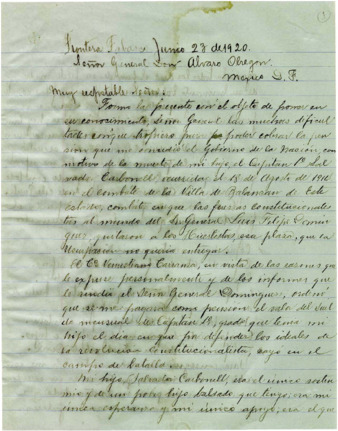 (1)
Frontera Tabasco Junio 28 de 1920.
Señor General Don Alvaro Obregon
Mexico D. F.
Muy respetable Señor:
Tomo la presente con el objeto de poner en
su conocimiento, Señor General las muchas dificul
tades con que tropiezo para poder cobrar la pen
sion que me concedió el Gobierno de la Nación, con
motivo de la muerte de mi hijo el Capitan 1º Sal
vador Carbonell, acaecida el 18 de Agosto de 191
en el combate de la Villa de Balancán de Este
estado, combate en que las fuerzas constitucionales
al mando del Sr General Luis Felipe Domin
guez quitaron a los Huertistas, esa plaza, que en
no querian entregar.
El C. Venustiano Carranza, en vista de las razones que
le expuse personalmente y de los informes que
le rindió el Señor General Dominguez, ordenó
que se me pagara como pension el valor del sueldo
mensual de Capitán 1º, grado que tenia mi
hijo el dia en que por defender los ideales de
la revolucion Constitucionalista, cayó en el
campo de batalla.
Mi hijo, Salvador Carbonell, era el único sosten
mio y de un pobre hijo baldado que tengo; era mi
unica esperanza y mi unico apoyo; era el que